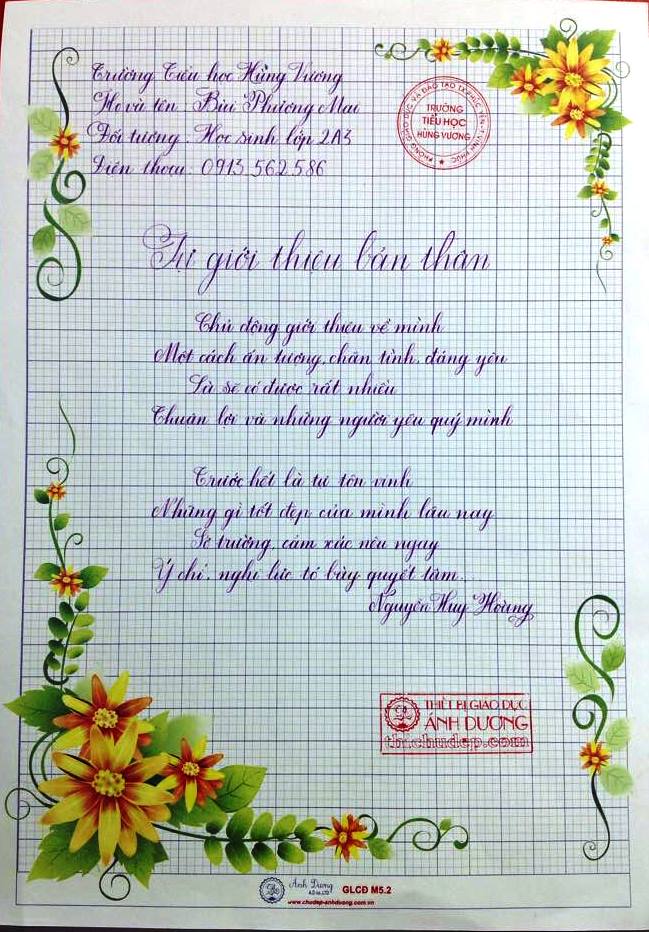 Trường Tiểu học Hùng Vương
Họ và tên: Bùi Phương Mai
Đối tượng: Học sinh lớp 2A3
Điện thoại: 0913.562.586
PHÒNG GIÁO DỤC VÀ ĐÀO TẠO TX PHÚC YÊN - T. VĨNH PHÚC
TRƯỜNG
TIỂU HỌC
HÙNG VƯƠNG
Tự giới thiệu bản thân
Chủ động giới thiệu về mình
Một cách ấn tượng, chân tình, đáng yêu
Là sẽ có được rất nhiều
Thuận lợi và những người yêu quý mình
Trước hết là tự tôn vinh
Những gì tốt đẹp của mình lâu nay
Sở trường, cảm xúc nêu ngay
Ý chí, nghị lực tỏ bày quyết tâm.
Nguyễn Huy Hoàng
THIẾT BỊ GIÁO DỤC
ÁNH DƯƠNG
thi.chudep.com
Ánh Dương
GLCĐ M5.2
www.chudep-anhduong.com.vn